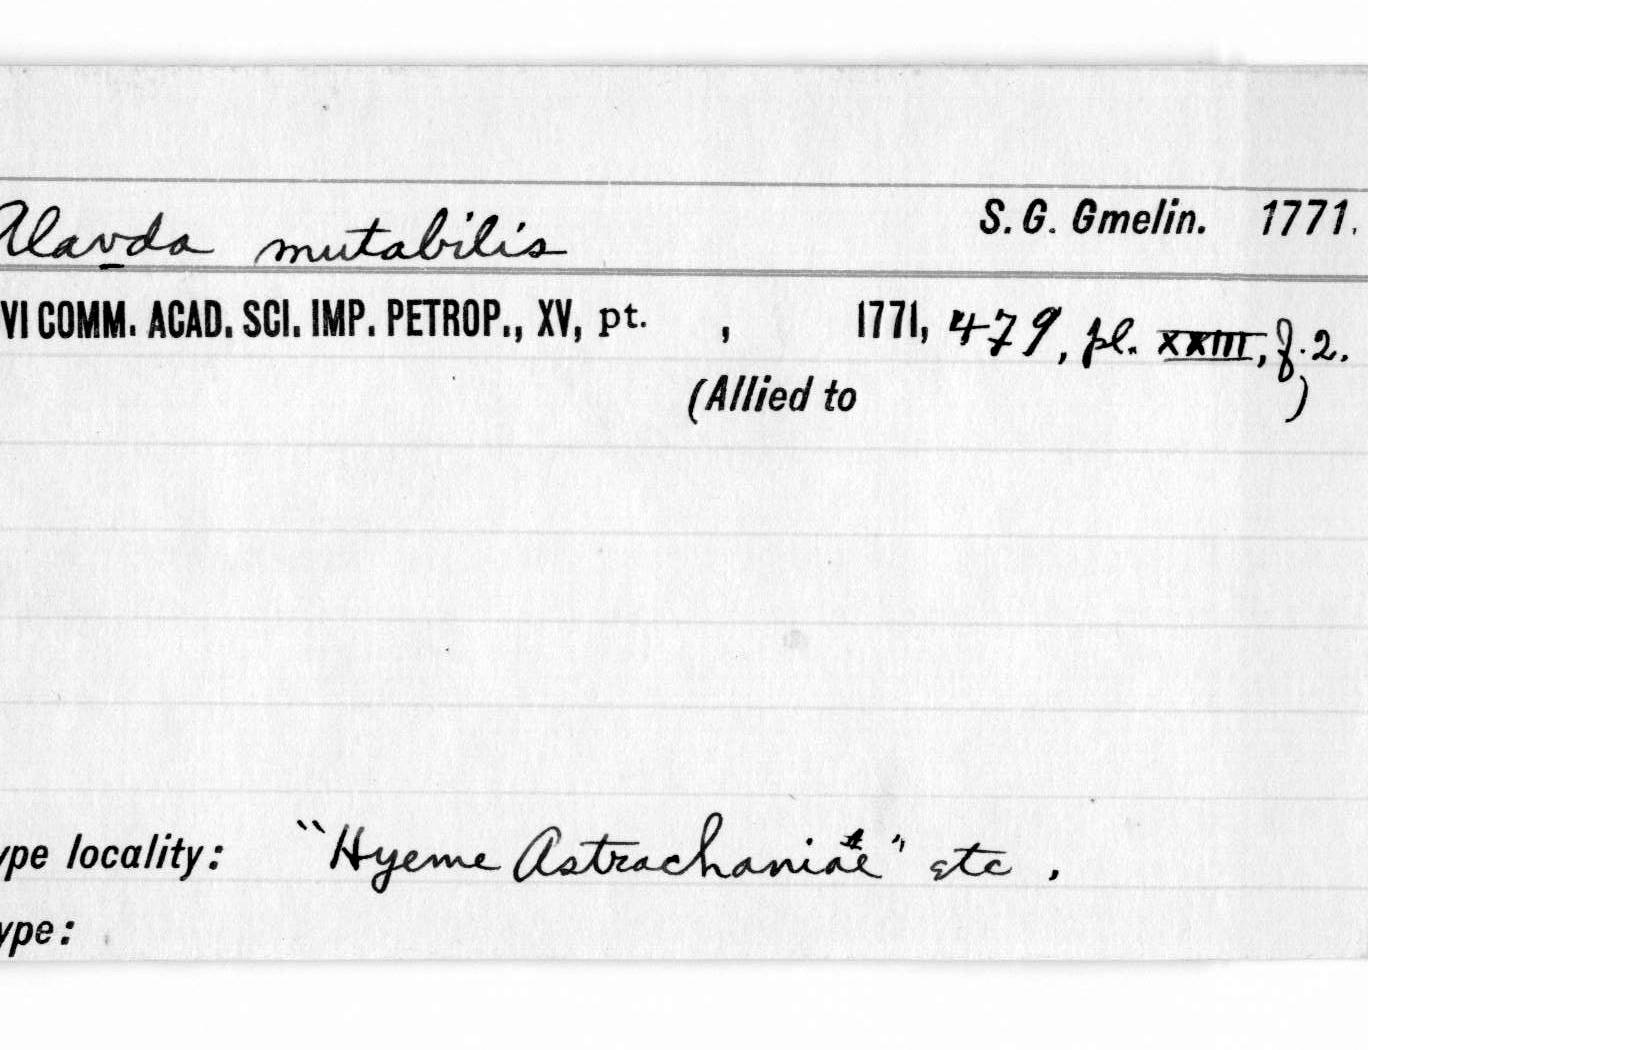 Alavda mutabilis S. G. Gmelin. 1771.
VI COMM. ACAD. SCI. IMP. PETROP., XV, pt. , 1771, 479, pl. XXIII, f. 2.
(Allied to )
ype locality: "Hyeme Astrachaniae" etc.
ype: